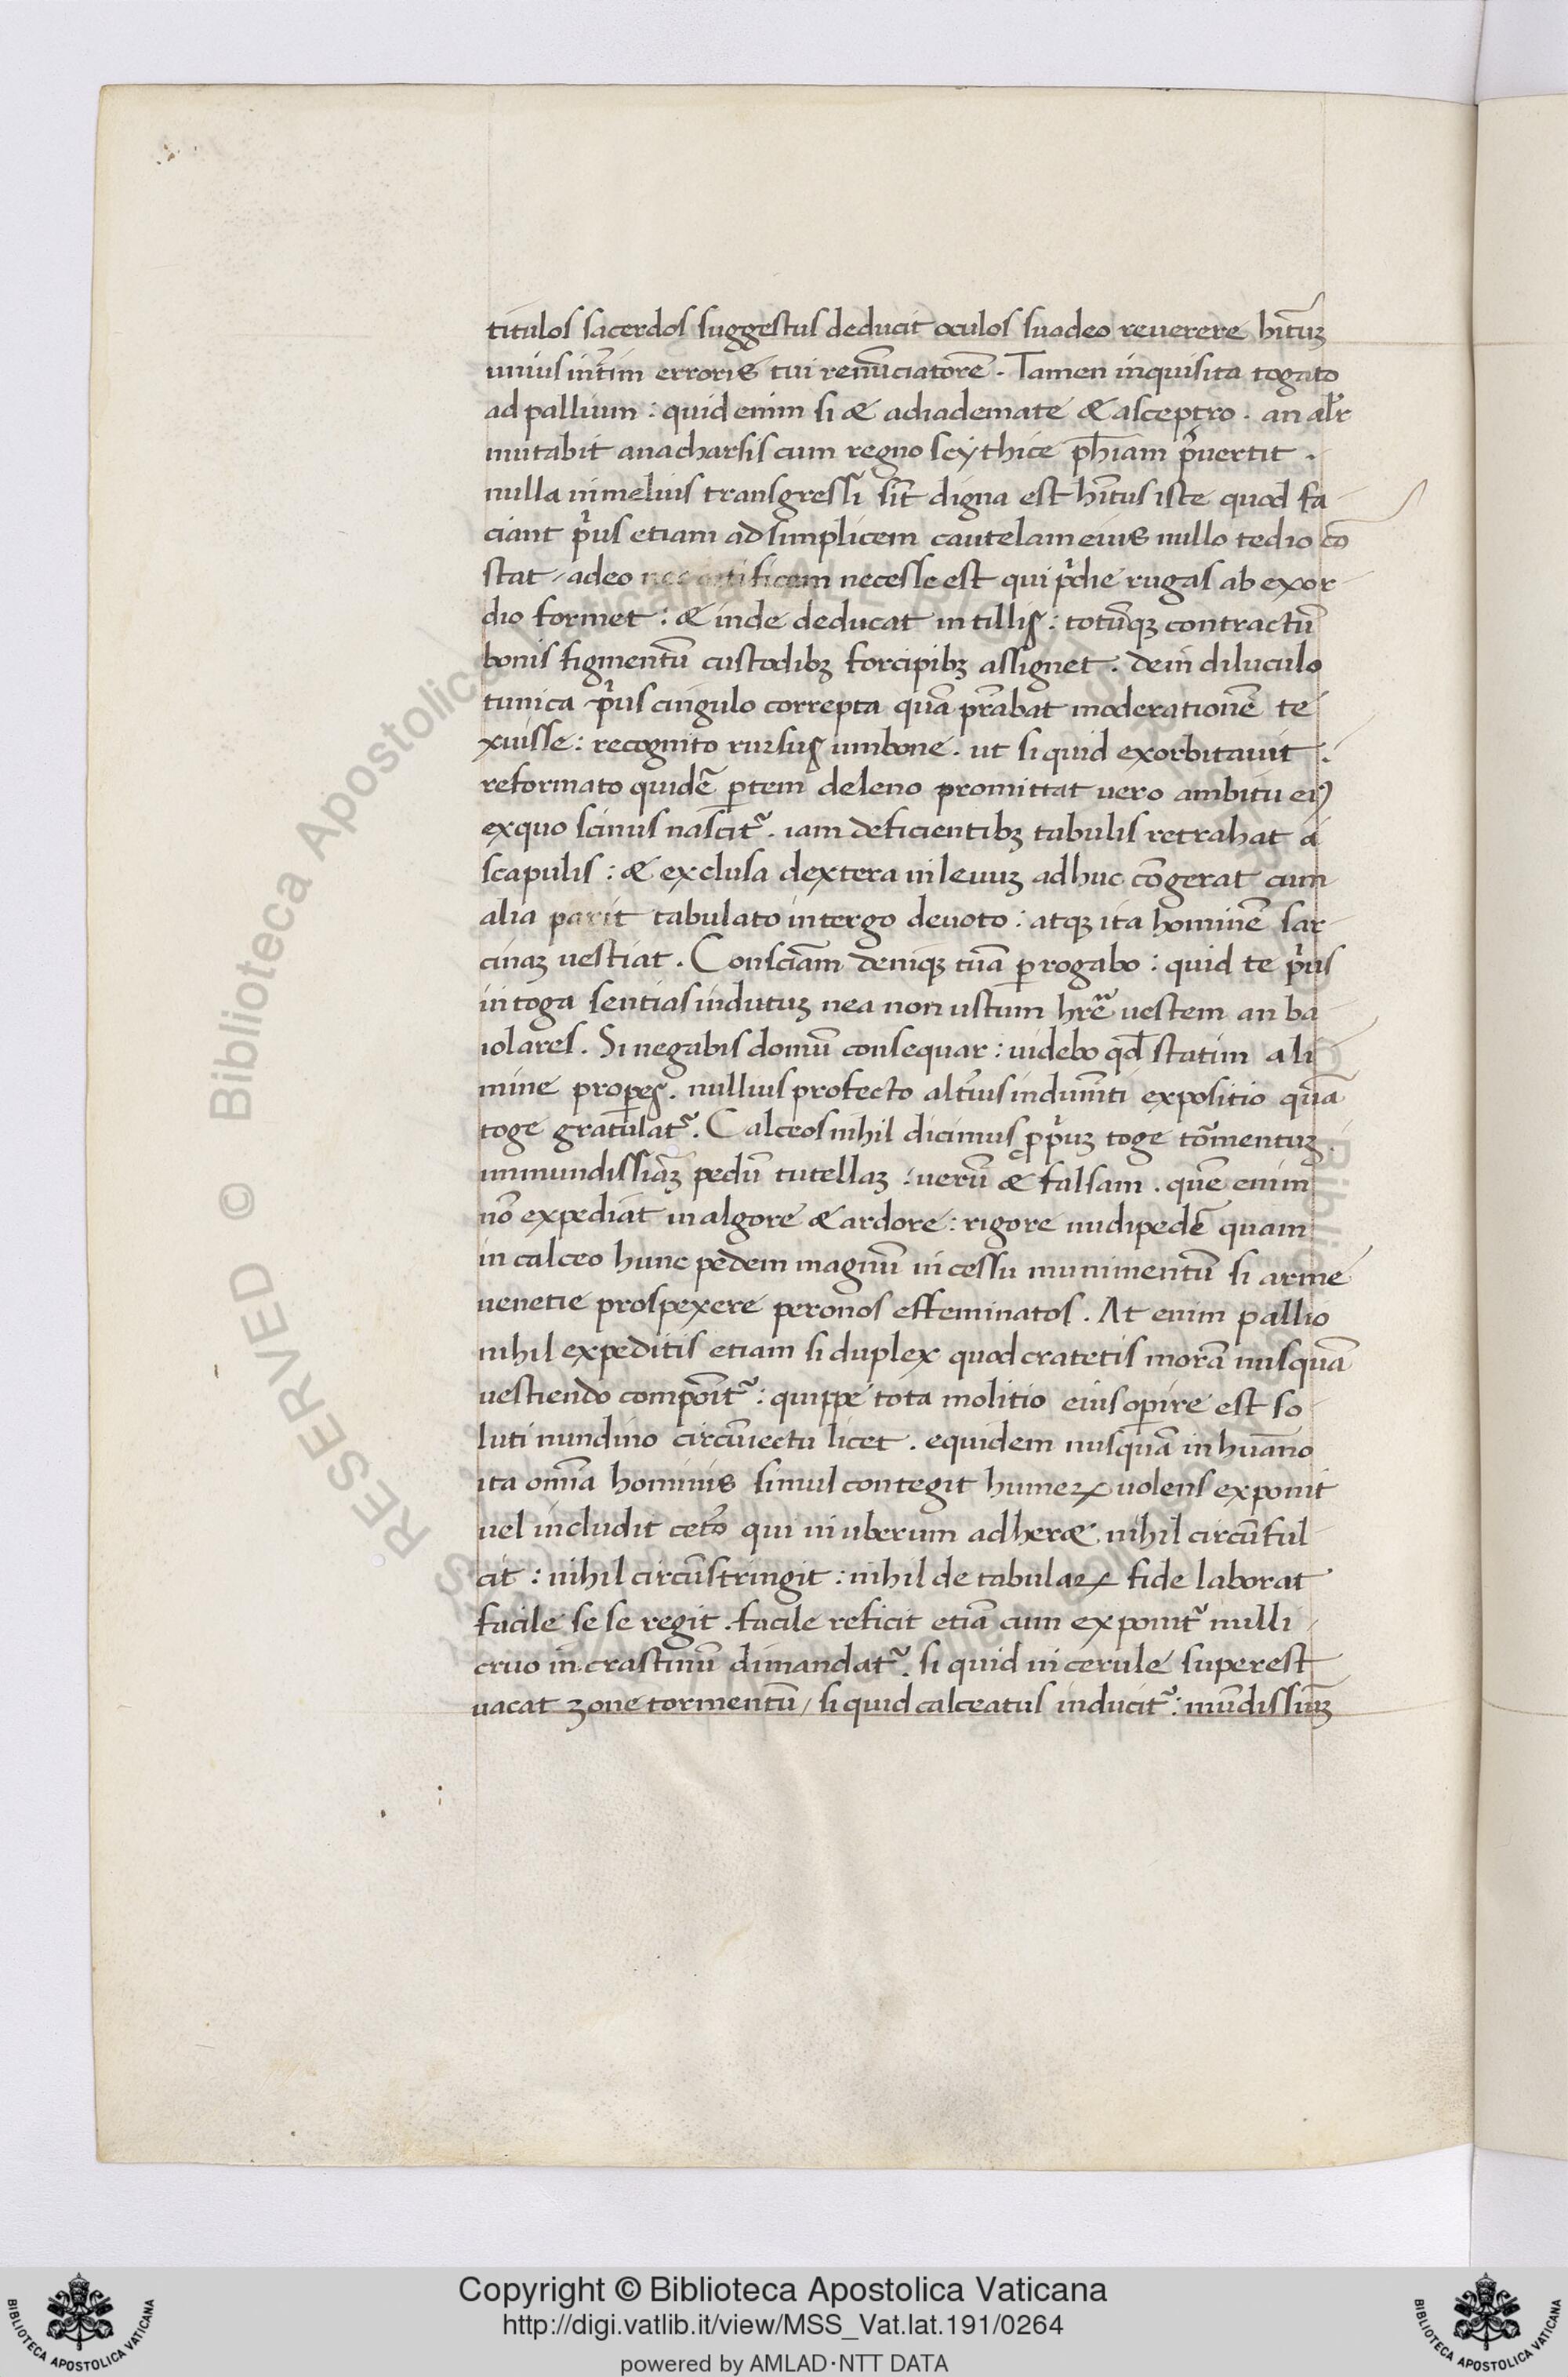 titulos sacerdos suggestus deducit oculos suadeo reuerere hitũꝫ
unius inťim erroris tui renũciatorẽ. Tamen inquisita togato
ad pallium: quid enim si & adiademate & asceptro. an alr̃
mutabit anacharsis cum regno scythice ph̃iam p̃uertit.
nulla inmelius transgressi sĩt digna est hĩtus iste quod fa
ciant p̃us etiam ad simplicem cautelam eius nullo tedio cõ
stat. adeo nec artificem necesse est qui p̃die rugas ab exor
dio formet: & inde deducat intillis: totũqꝫ contractũ
bonis figmentũ custodibꝫ forcipibꝫ assignet. dein diluculo
tunica p̃us cingulo correpta quã prãbat moderationẽ te
xuisse: recognito rursus umbone. ut si quid exorbitauit.
reformato quidẽ ꝑtem deleno promittat uero ambitu eiꝰ
exquo scinus nascit᷑. iam deficientibꝫ tabulis retrahat a
scapulis: & exclusa dextera inleuuꝫ adhuc cõgerat cum
alia parit tabulato intergo deuoto: atqꝫ ita hominẽ sar
cinaꝫ uestiat. Consciãm deniqꝫ tuã ꝑrogabo: quid te p̃us
intoga sentias indutuꝫ nea non ustum hr̃e uestem an ba
iolares. Si negabis domũ consequar: uidebo qđ statim a li
mine proꝑes. nullius profecto alťius indumẽti expositio quã
toge gratulat᷑. Calceos nihil dicimus ꝓp̃uꝫ toge tõmentuꝫ
immundissiãꝫ pedũ tutellaꝫ: uerũ & falsam. quẽ enim
nõ expediat in algore & ardore: rigore nudipedẽ quam
in calceo hunc pedem magnũ in cessu munimentũ si arme
uenetie prospexere peronos effeminatos. At enim pallio
nihil expeditis etiam si duplex quod cratetis morã nusquã
uestiendo compõit᷑: quippe tota molitio eius oꝑire est so
luti nundino circũuectu licet. equidem nusquã inhuãno
ita om̃ia hominis simul contegit humeꝝ uolens exponit
uel includit ceťo qui in uberum adheræ nihil circũful
cit: nihil circũstringit: nihil de tabulaꝝ fide laborat
facile se se regit. facile reficit etiã cum exponit᷑ nulli
cruo in crastinũ dimandat᷑. si quid in cerule superest
uacat zone tormentũ, si quid calceatus inducit᷑: mũdissimꝫ
RESERVED © Biblioteca Apostolica Vaticana
Copyright © Biblioteca Apostolica Vaticana
http://digi.vatlib.it/view/MSS_Vat.lat.191/0264
powered by AMLAD·NTT DATA
BIBLIOTECA APOSTOLICA VATICANA
BIBLIOTECA APOSTOLICA VATICANA